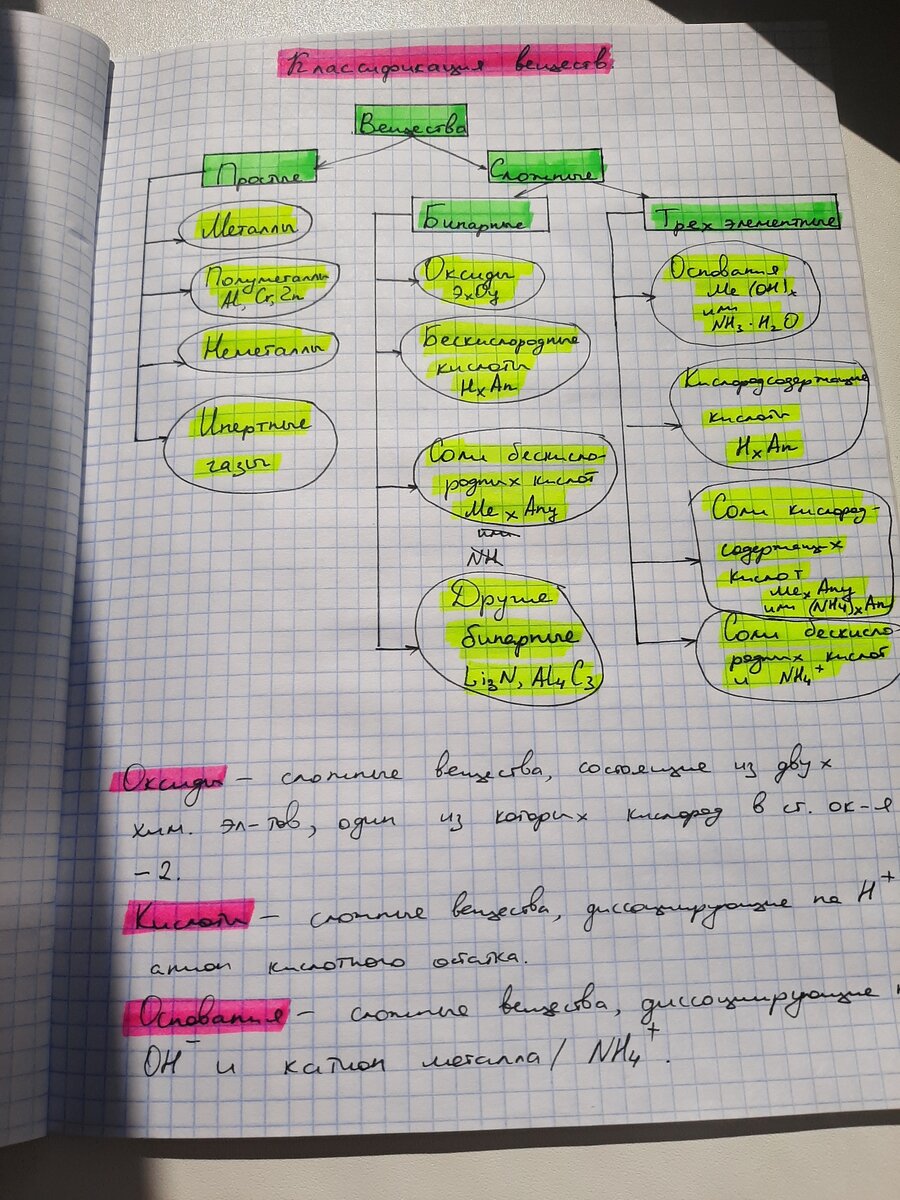 Классификация веществ
Вещества
Простые
Сложные
Металлы
Полуметаллы
Al, Cr, Zn
Неметаллы
Инертные
газы
Бинарные
Оксиды
ЭxОy
Бескислородные
кислоты
HxAn
Соли бескисло-
родных кислот
MexAny
или
NH
Другие
бинарные
Li3N, Al4C3
Трех элементные
Основания
Me(OH)x
или
NH3·H2O
Кислородсодержащие
кислоты
HxAn
Соли кислород-
содержащих
кислот
MexAny
или (NH4)xAn
Соли бескисло-
родных кислот
и NH4+
Оксиды – сложные вещества, состоящие из двух
хим. эл-тов, один из которых кислород в ст. ок-я
-2.
Кислоты – сложные вещества, диссоциирующие на H+
анион кислотного остатка.
Основания – сложные вещества, диссоциирующие
OH- и катион металла/ NH4+.